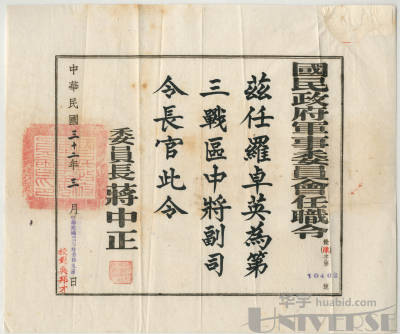 國民政府軍事委員會任職令
10402
號
茲任羅卓英為第
三戰區中將副司
令長官此令
委員長蔣中正
中華民國三十二年三月日
华宇 huabid.com
UNIVERSE